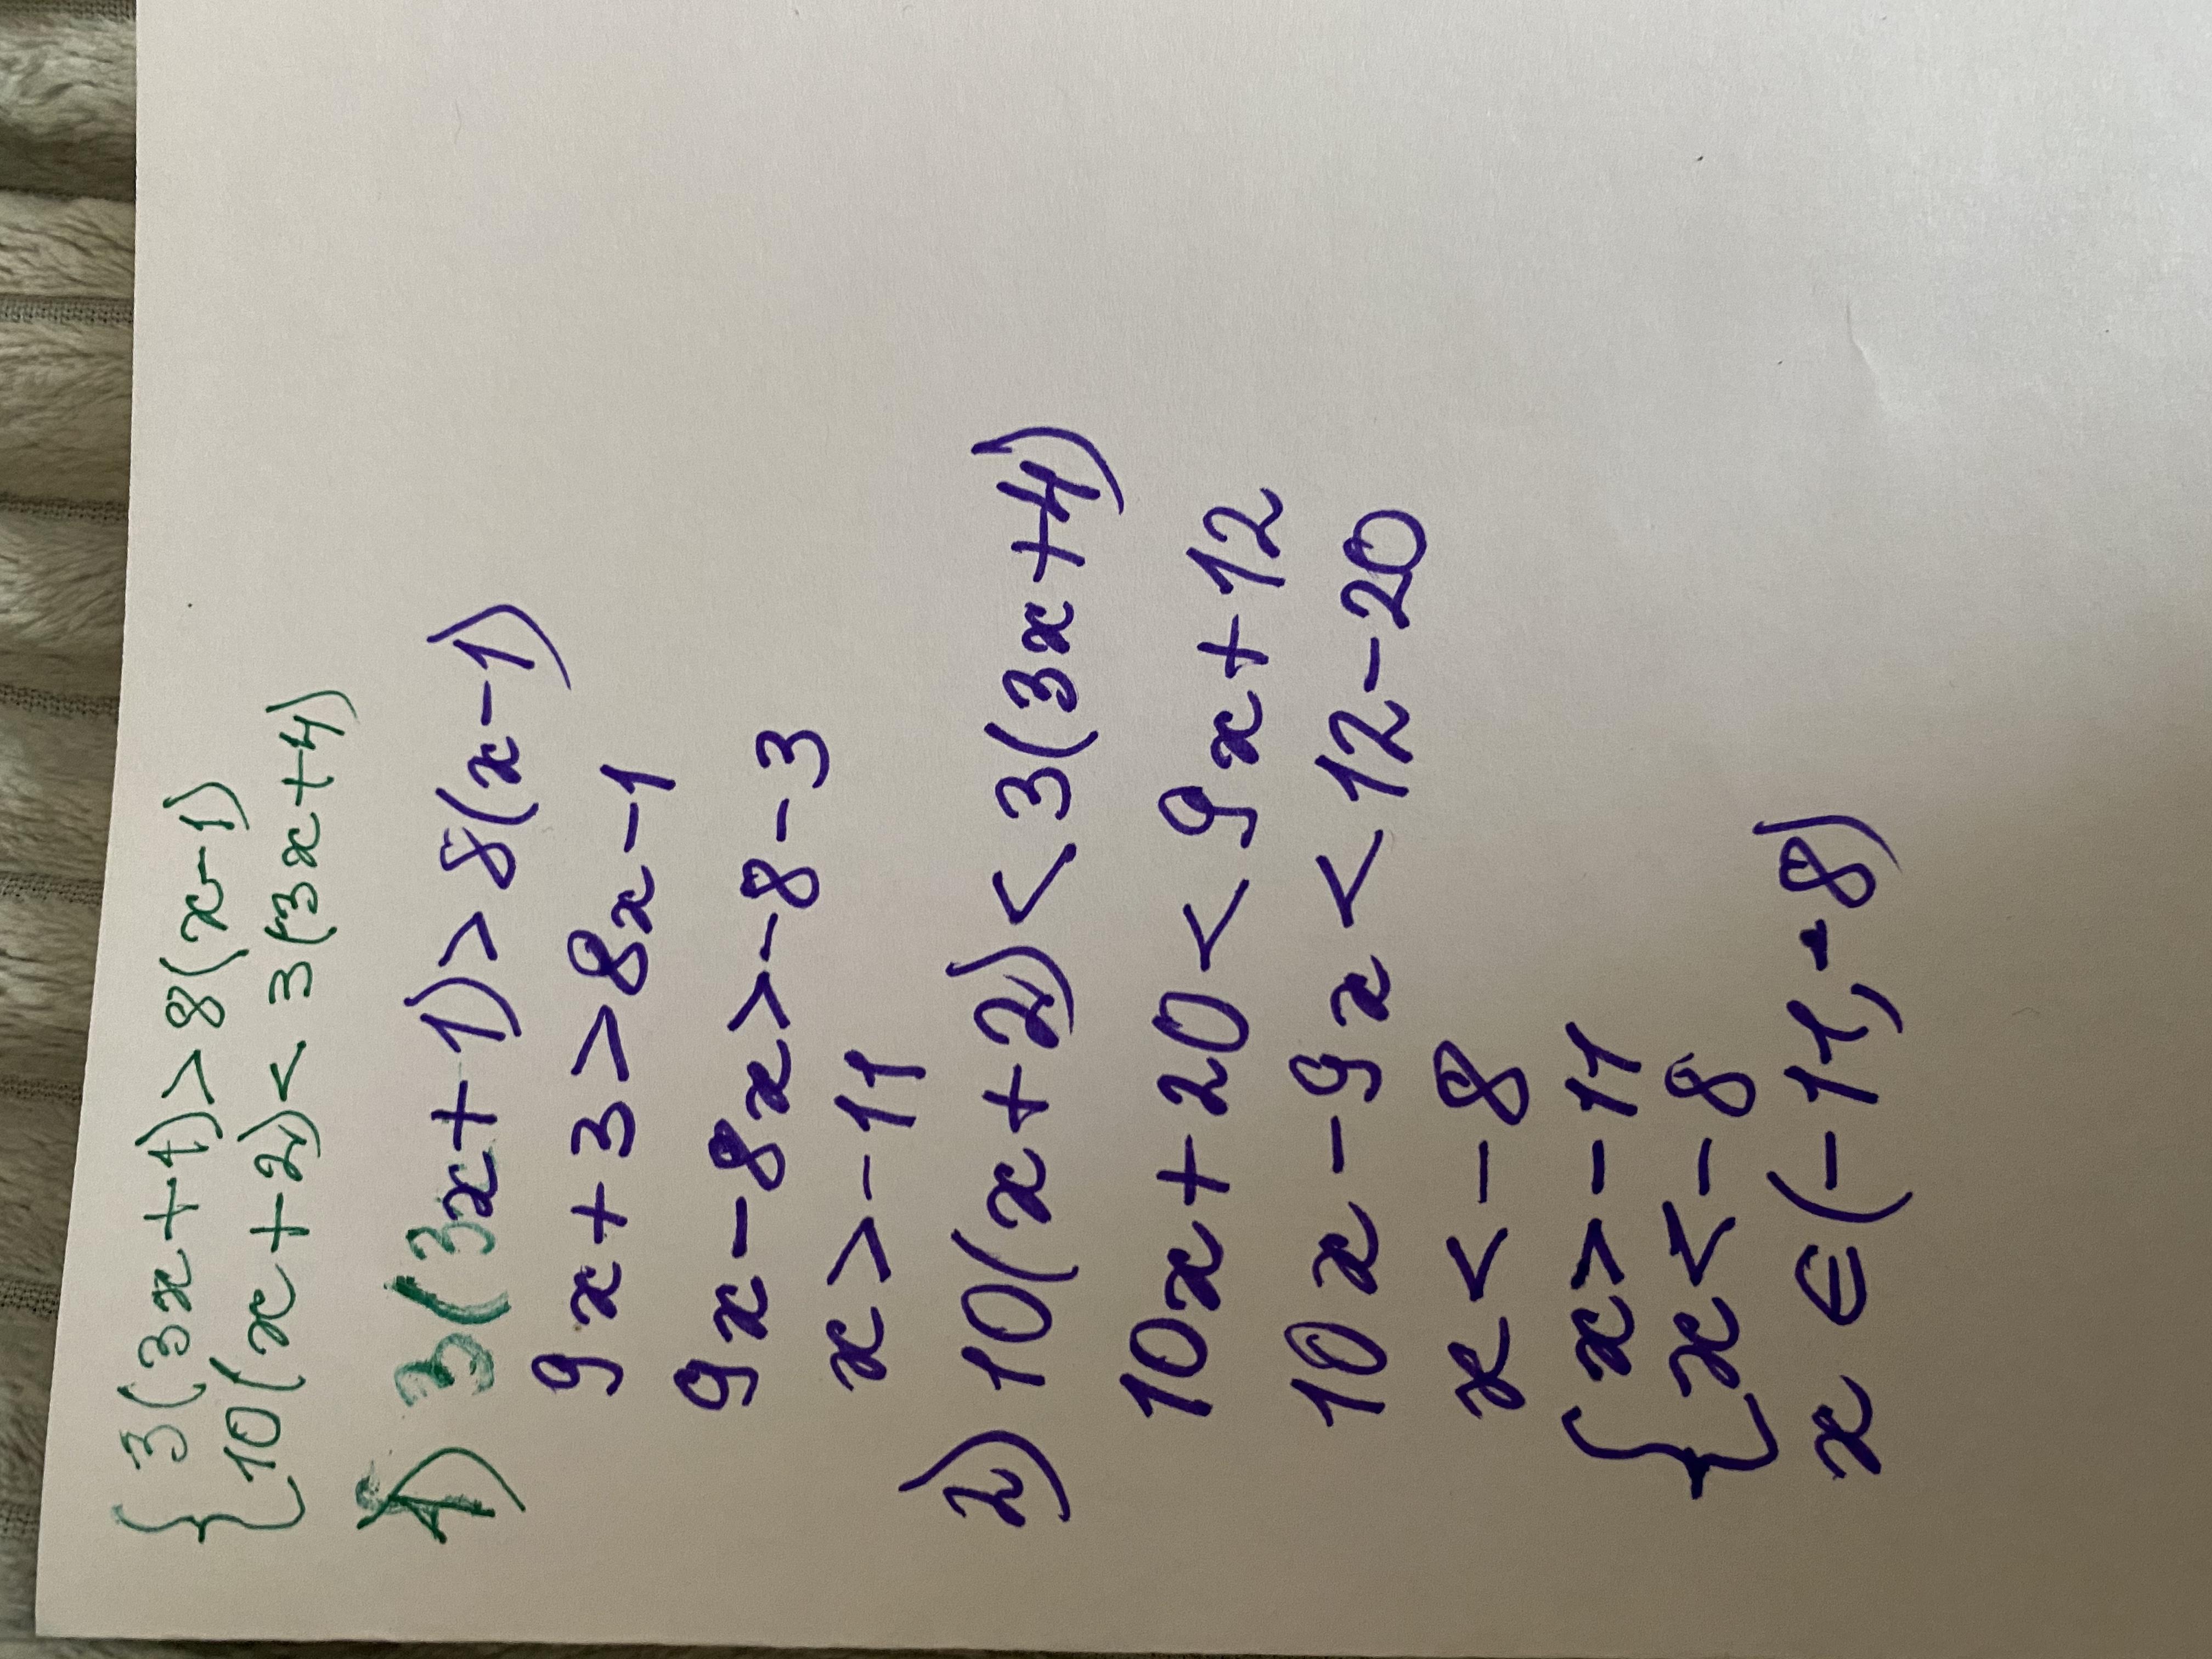 { 3(3x+1)>8(x-1)
10(x+2)< 3(3x+4)
1) 3(3x+1)>8(x-1)
9x+3>8x-1
9x-8x>-8-3
x>-11
2) 10(x+2)<3(3x+4)
10x+20<9x+12
10x-9x<12-20
x<-8
{ x>-11
x<-8
x∈(-11;-8)